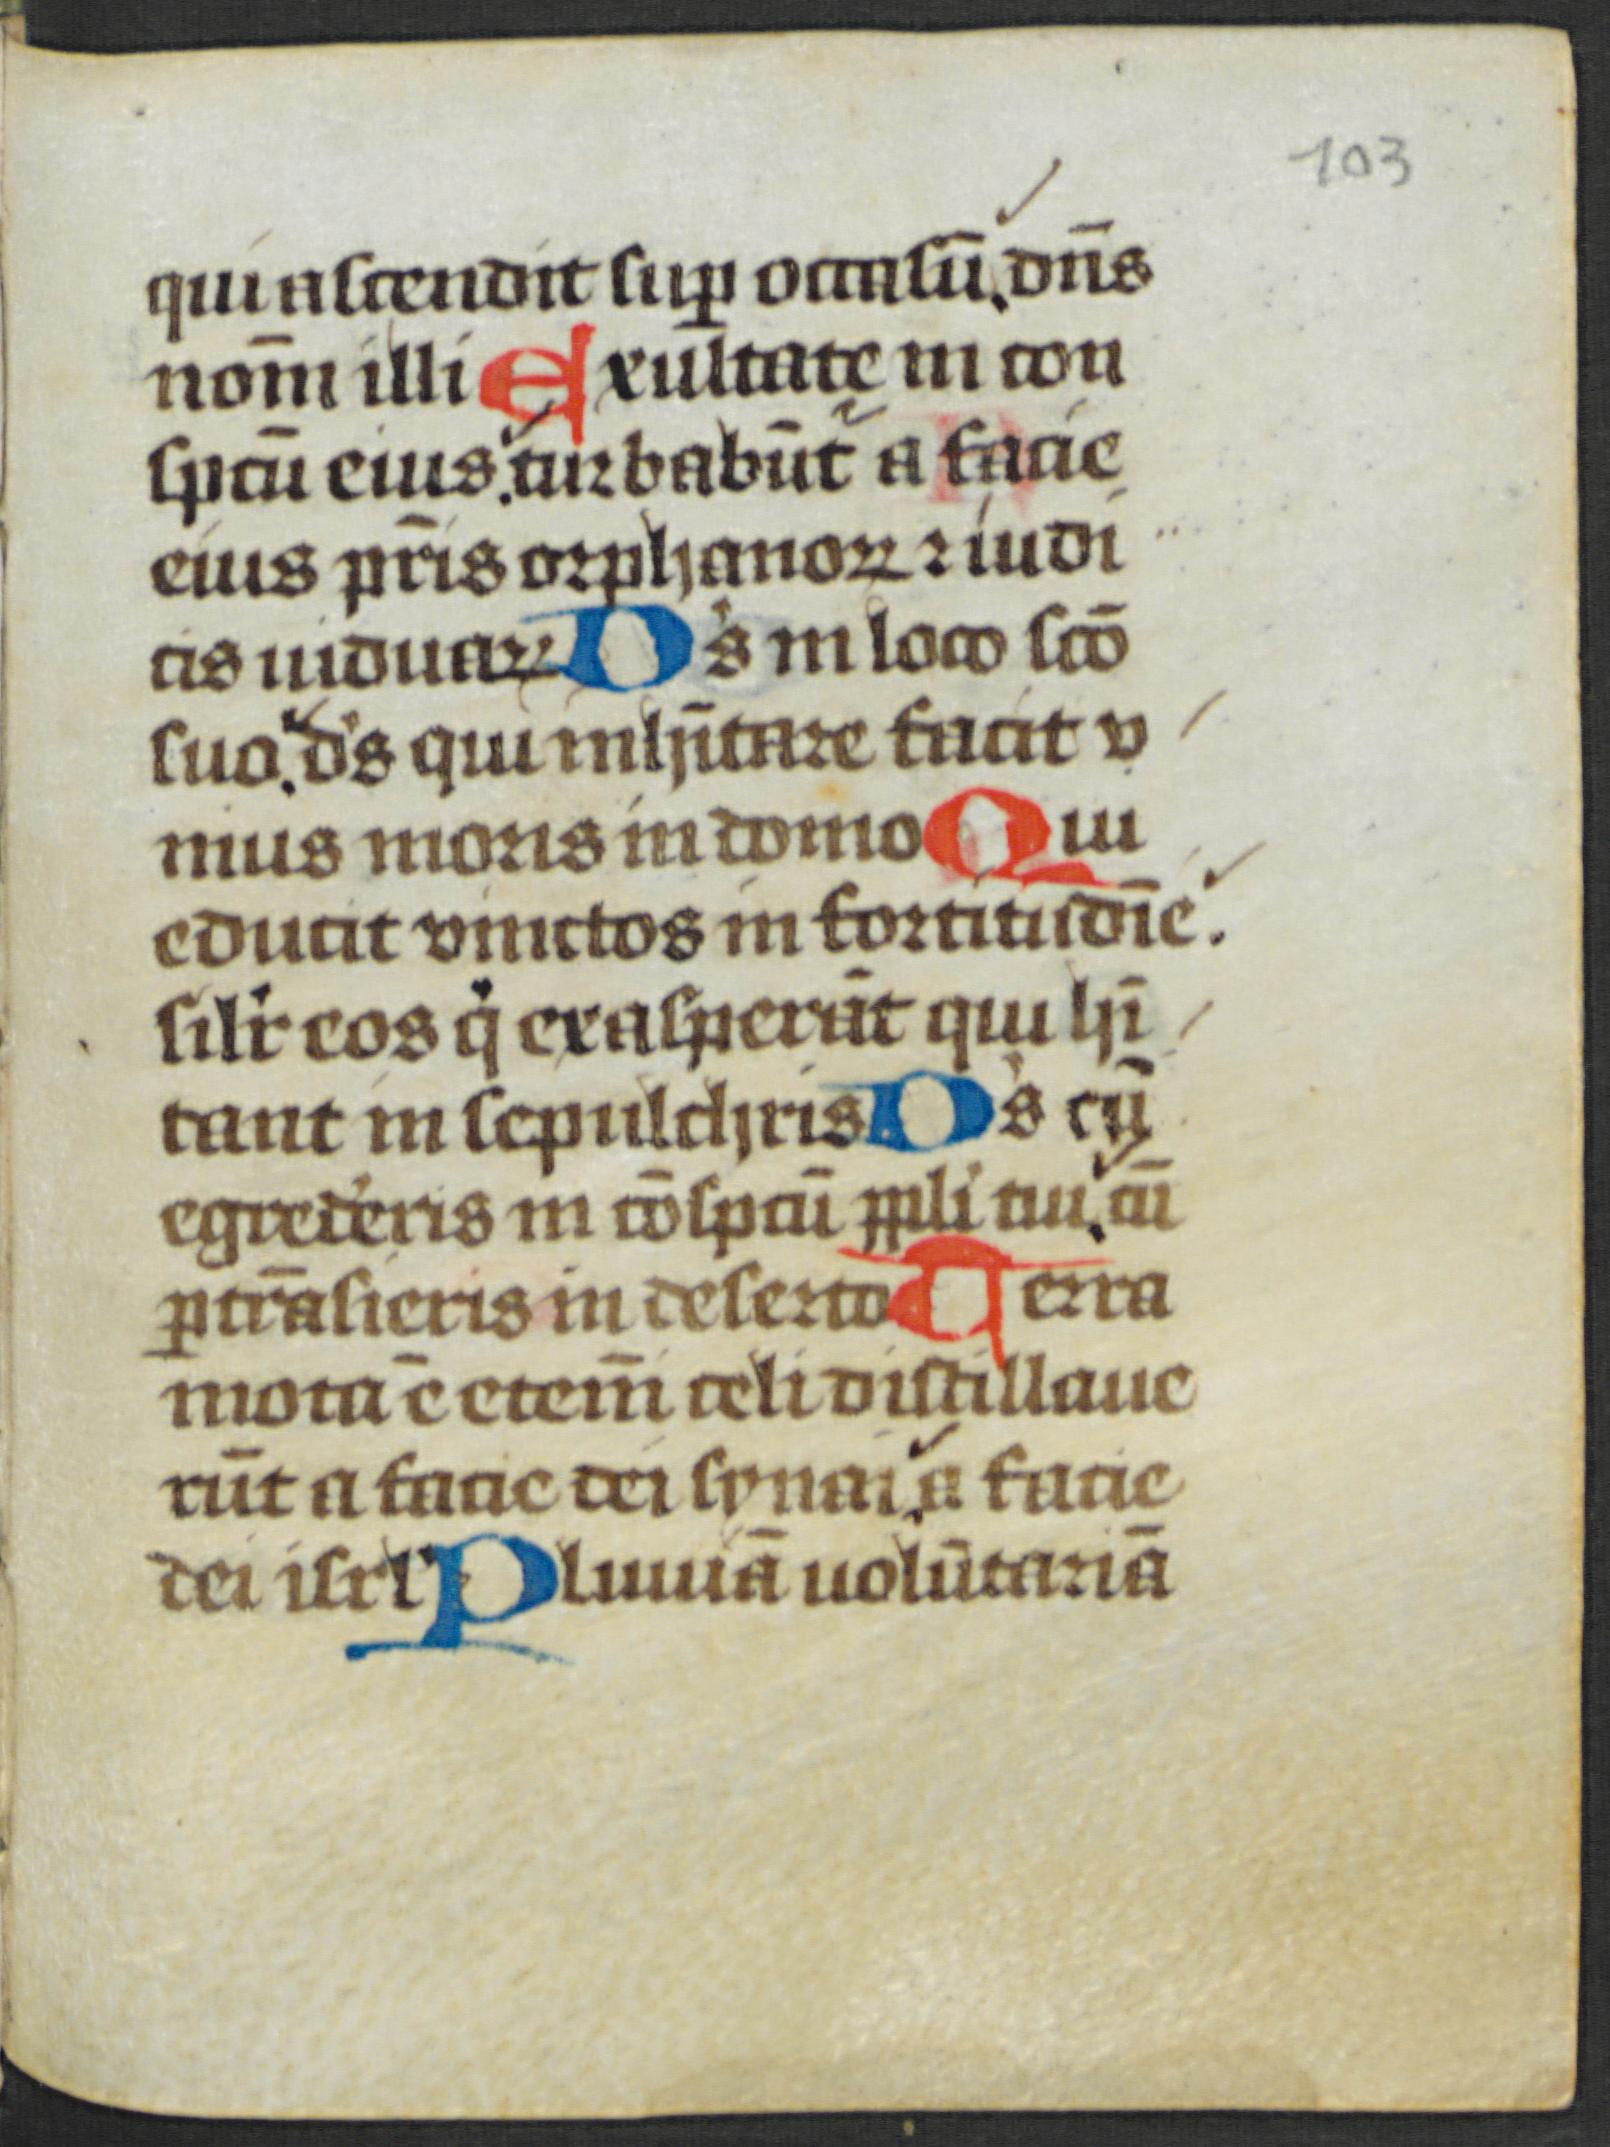 103
qui ascendit suꝑ occasū. dn̄s
nom̄ illi Exultate in con
spcū eius. turbabūt᷑ a facie
eius pr̄is orphanoꝝ ⁊ iudi
cis uiduaꝝ D's in loco scō
suo. d's qui inhītare facit v
nius moris in domo Qui
educit vinctos in fortitudīe.
silr̄ eos q̇ exasperāt qui hī
tant in sepulchris D's cū
egred'eris in cōspcū ppl̄i tui. cū
ꝑtrāsieris in deserto Terra
mota ē etem̄ celi distillaue
rūt a facie dei synai. a facie
dei isrl' Pluuiā uolūtariā